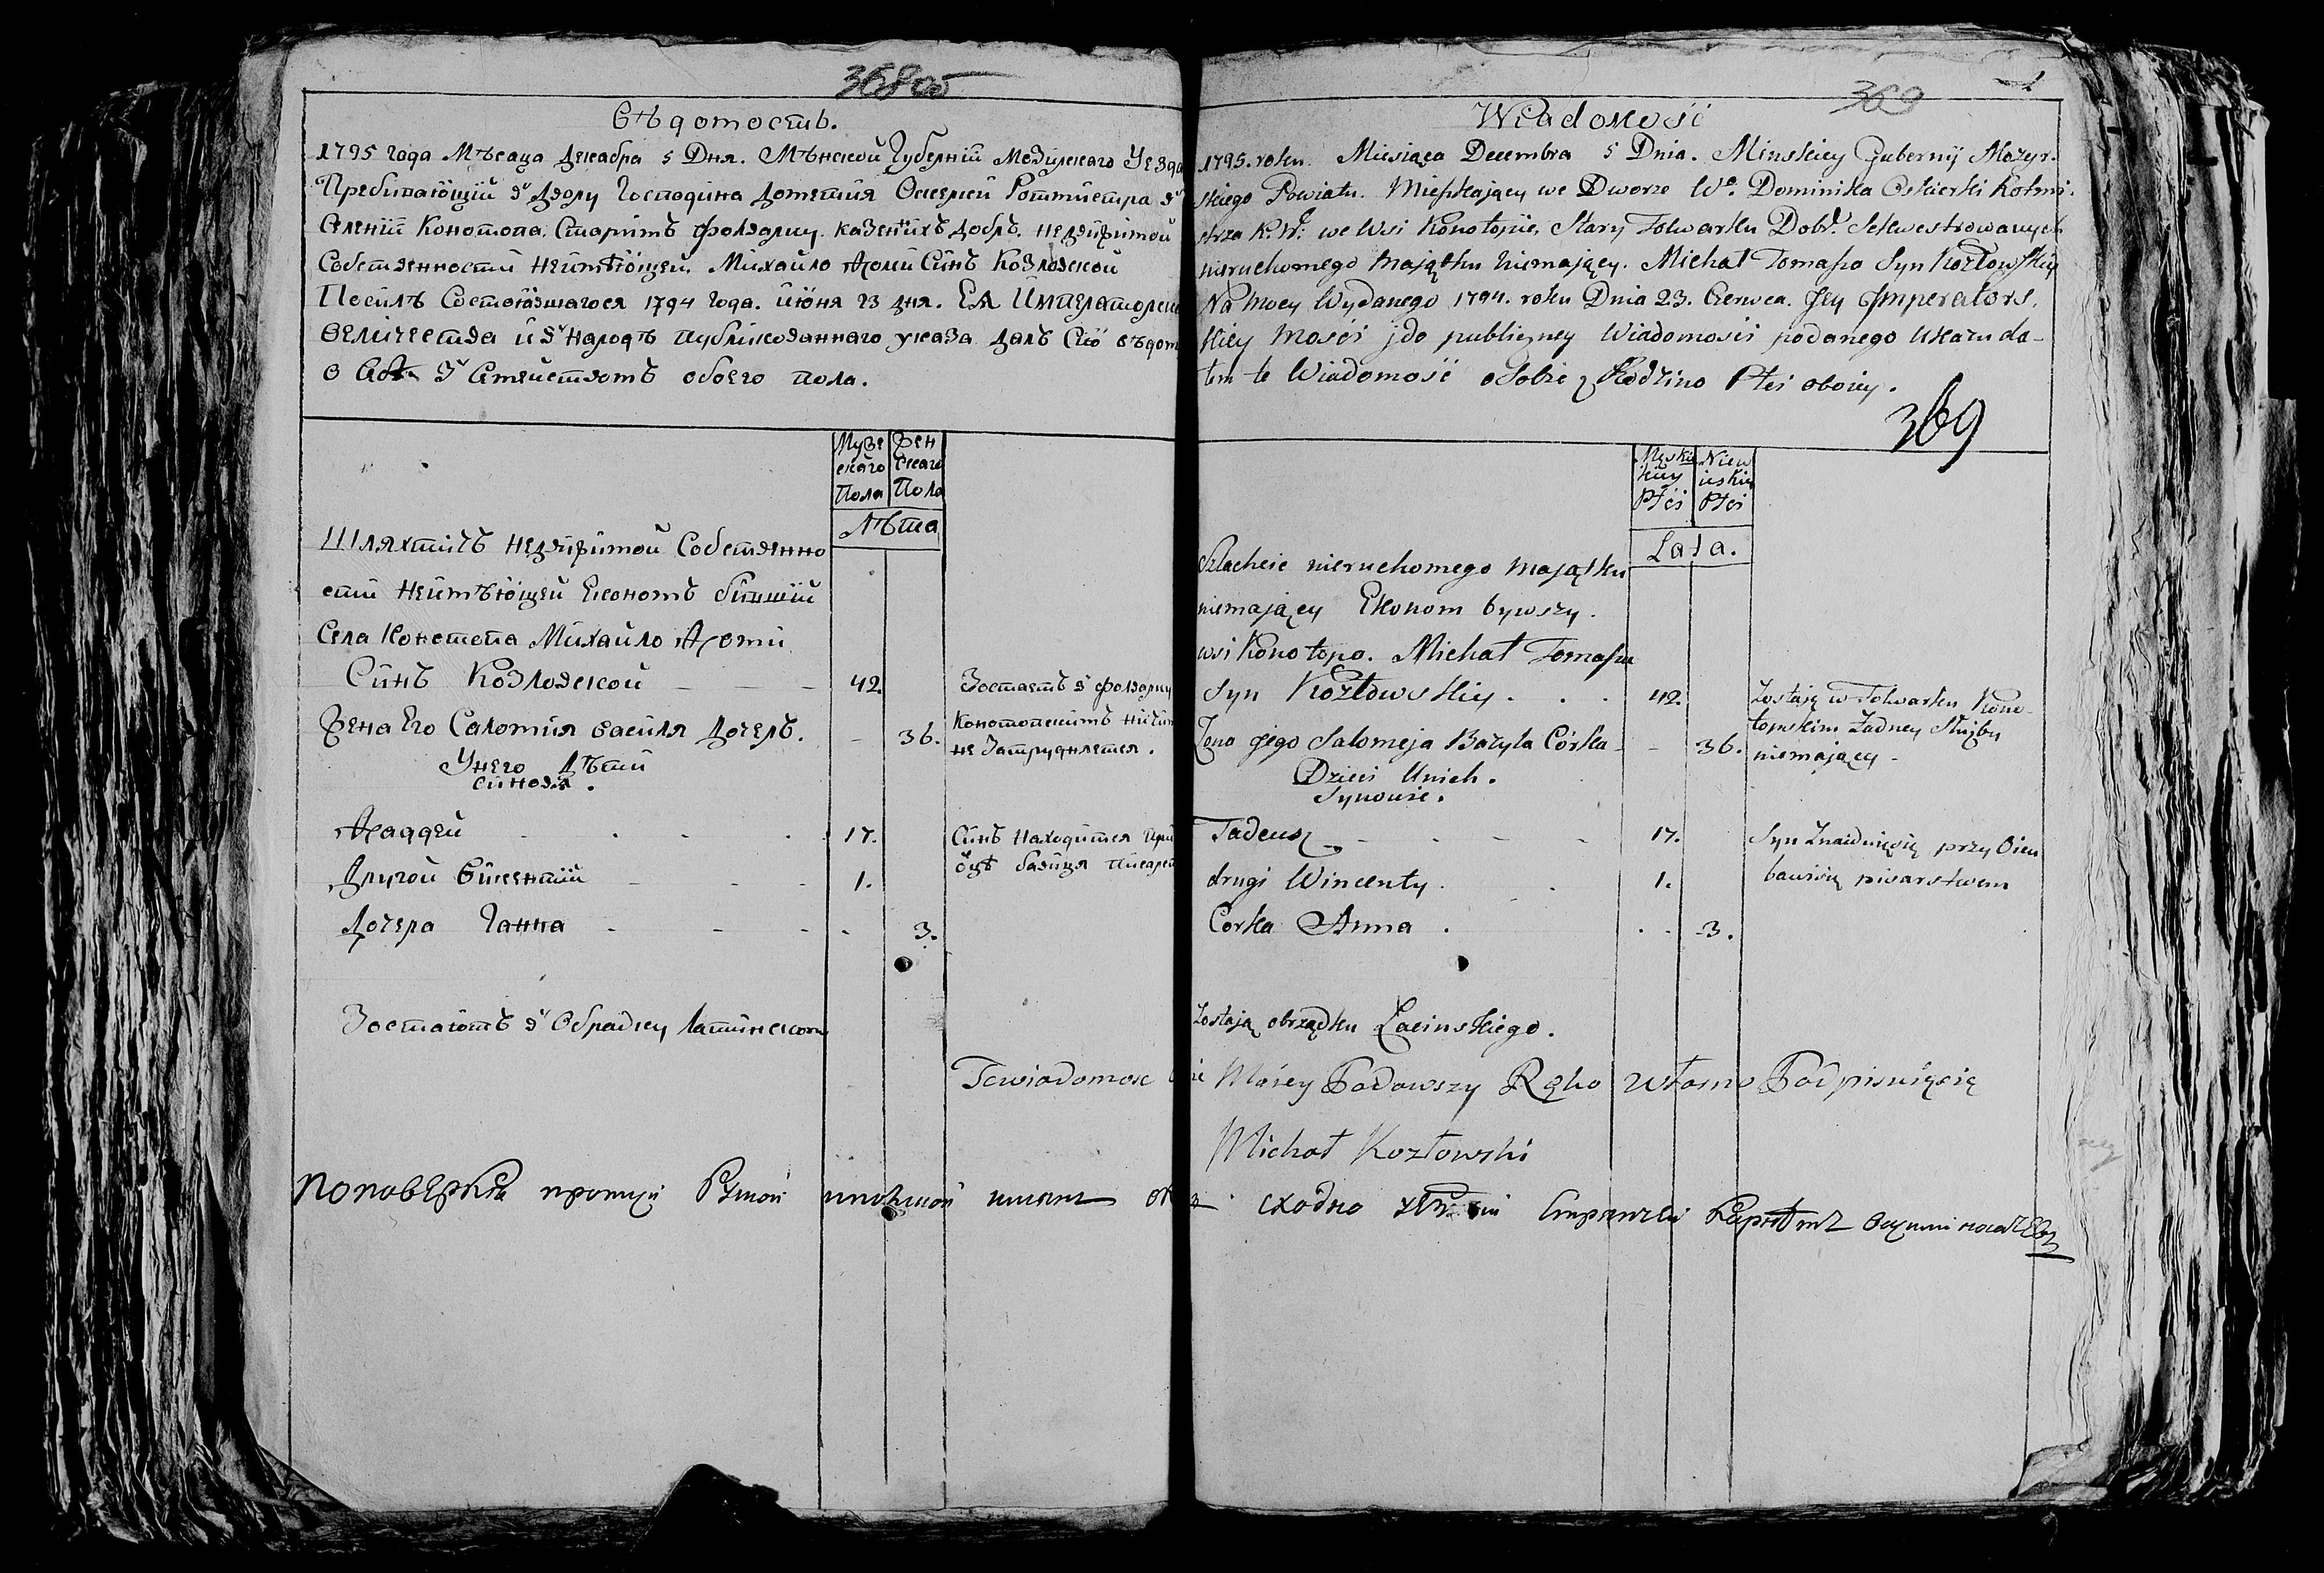 368об
Вѣдомость.
1795 года Мѣсаца Декабра 5 Дня. Мѣнской Губерніи Мозирскаго Уезда
Пребивающій в Двору Господина Доменія Оскерки Ротмистра в
Селеніи Конотопа, Старимъ фолварку казенихъ добръ, недвижимой
Собственности неимѣющей Михайло Фоми Синъ Козловской
Посилъ Состоявшагося 1794 года. июня 23 дня. Ея Императорск
Величества и в народъ публикованнаго указа далъ Сию вѣдом
о Себѣ в Семействомъ обоего пола.
Мужескаго Пола
Женскаго Пола
Лѣта
Шляхтичъ недвижимой Собственно
сти неимѣющей Економъ бившій
Села Конотопа Михайло Фоми
Синъ Козловской - - - 42.
Зостаетъ в фолварку
Жена Его Саломія Василя Дочеръ. - 36.
Конотопскимъ ничим
не Затруднлется.
Унего Дѣти
Синовя.
Фаддей 17.
Синъ Находится При
Другой Викентій - - - 1.
оцѣ бавиця писарст
Дочера Ганна - - - 3.
Зостаютъ в Обрадку Латинском
Tewiadomosc
по поверки против
369
1
Wiadomość
1795. roku. Miesiąca Decembra 5 Dnia. Minskiey Gubernij Mozyr-
skiego Powiatu. Mieszkaiący we Dworze Wo. Dominika Oskierki Rotmi-
strza K. W. we Wsi Konotopie, Stary Folwarku Dobr. Sekwestrowanych
nieruchomego majątku niemający. Michał Tomasza Syn Kozłowskiy
Na Mocy Wydanego 1794. roku Dnia 23. Czerwca. Jey Imperators.
kiey Mości j do publiczney Wiadomości podanego Ukazu da-
łem te Wiadomość o Sobie z Rodzino Płci oboiey.
369
Męskiey Płci
Niewieskiey Płci
Lata.
Szlachcic nieruchomego majątku
niemający Ekonom bywszy.
wsi Konotopo. Michał Tomasza
Syn Kozłowskiy. . . 42.
Zostaję w Folwarku Kono-
topskim Żadney Służby
niemający -
Żona jego Salomeja Bazyla Córka - - 36.
Dzieci Unich.
Synowie.
Tadeusz - - - - 17.
Syn Znaiduięsię przy Oicu
drugi Wincenty. . 1.
bawisię pisarstwem
Corka Anna . . - 3.
Zostają obrządku Łacinskiego.
Podawszy Ręko Własno Podpisuięsię
Michał Kozłowski
сходно